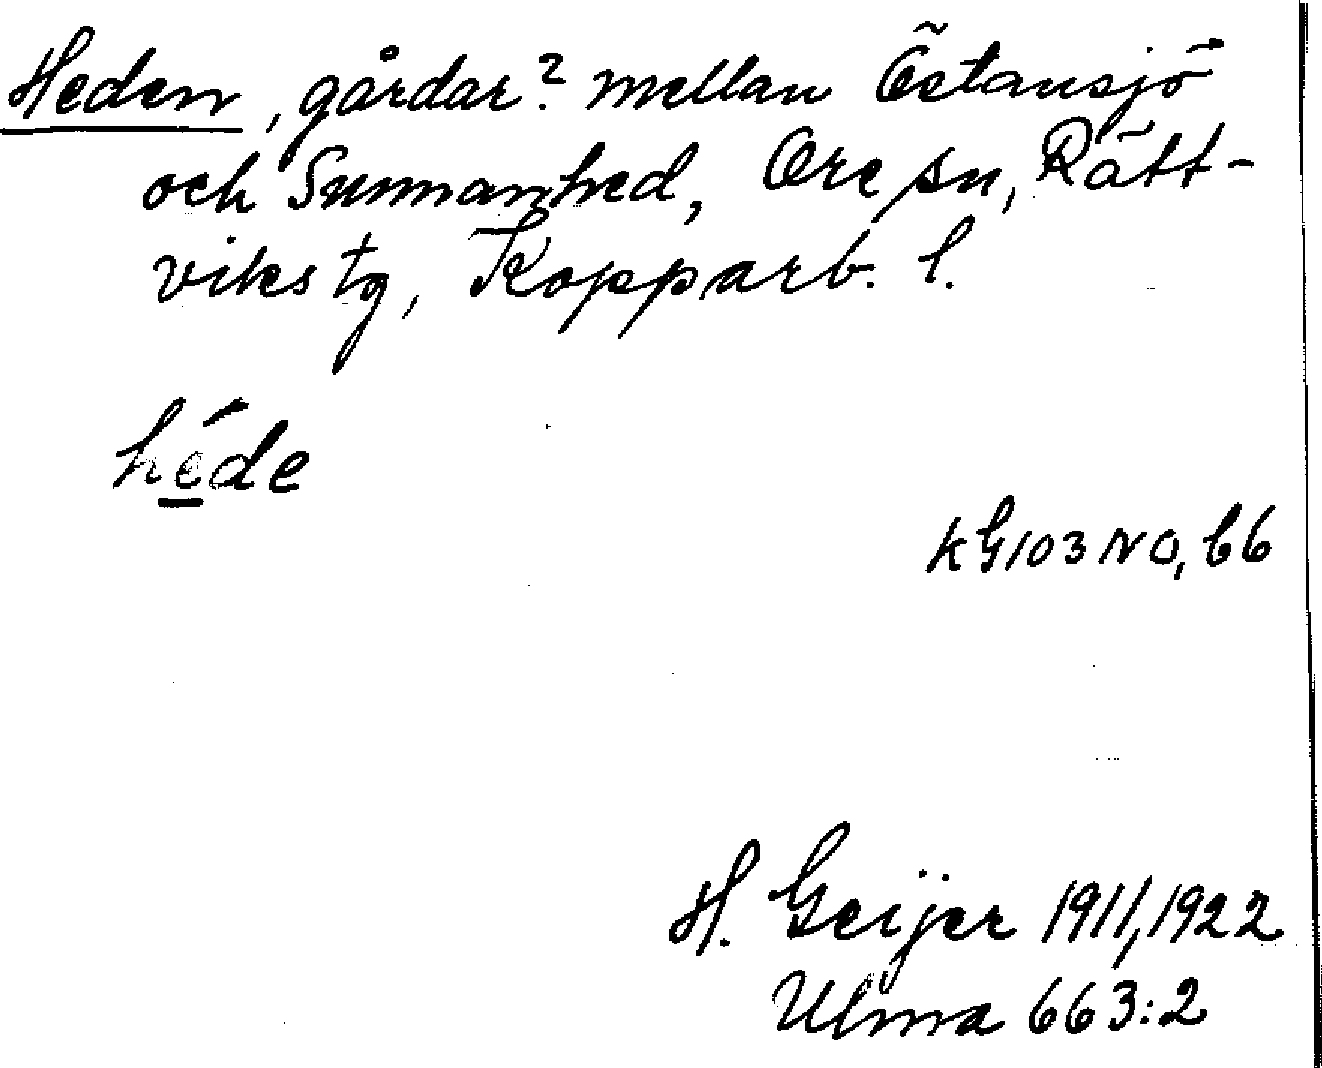 Heden, gårdar? mellan Östansjö
och Sunnanhed, Ore sn, Rätt-
viks tg, Kopparb. l.
héde
KG103NO, b6
H. Geijer 1911, 1922
Ulma 663:2